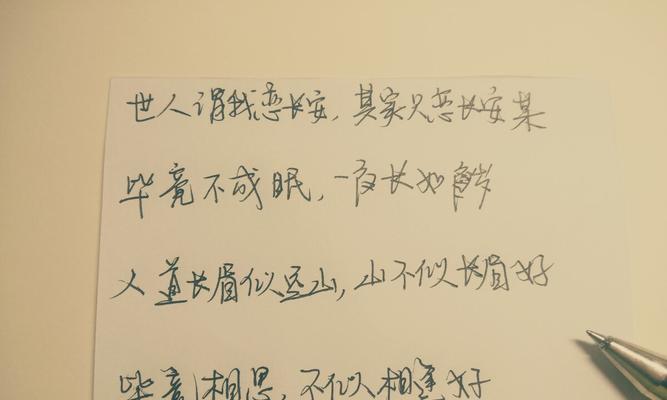 世人谓我恋长安，其实只恋长安某
毕竟不成眠，一夜长如岁
人道长眉似远山，山不似长眉好
毕竟相思，不似相逢好